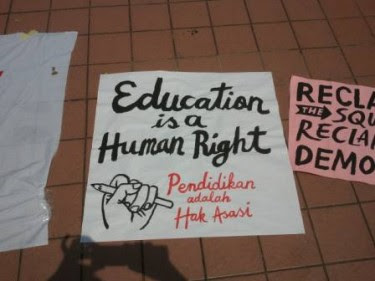 Education
is a
Human Right
Pendidikan
adalah
Hak Asasi
RECLA
THE SQU
RECLA
DEMO